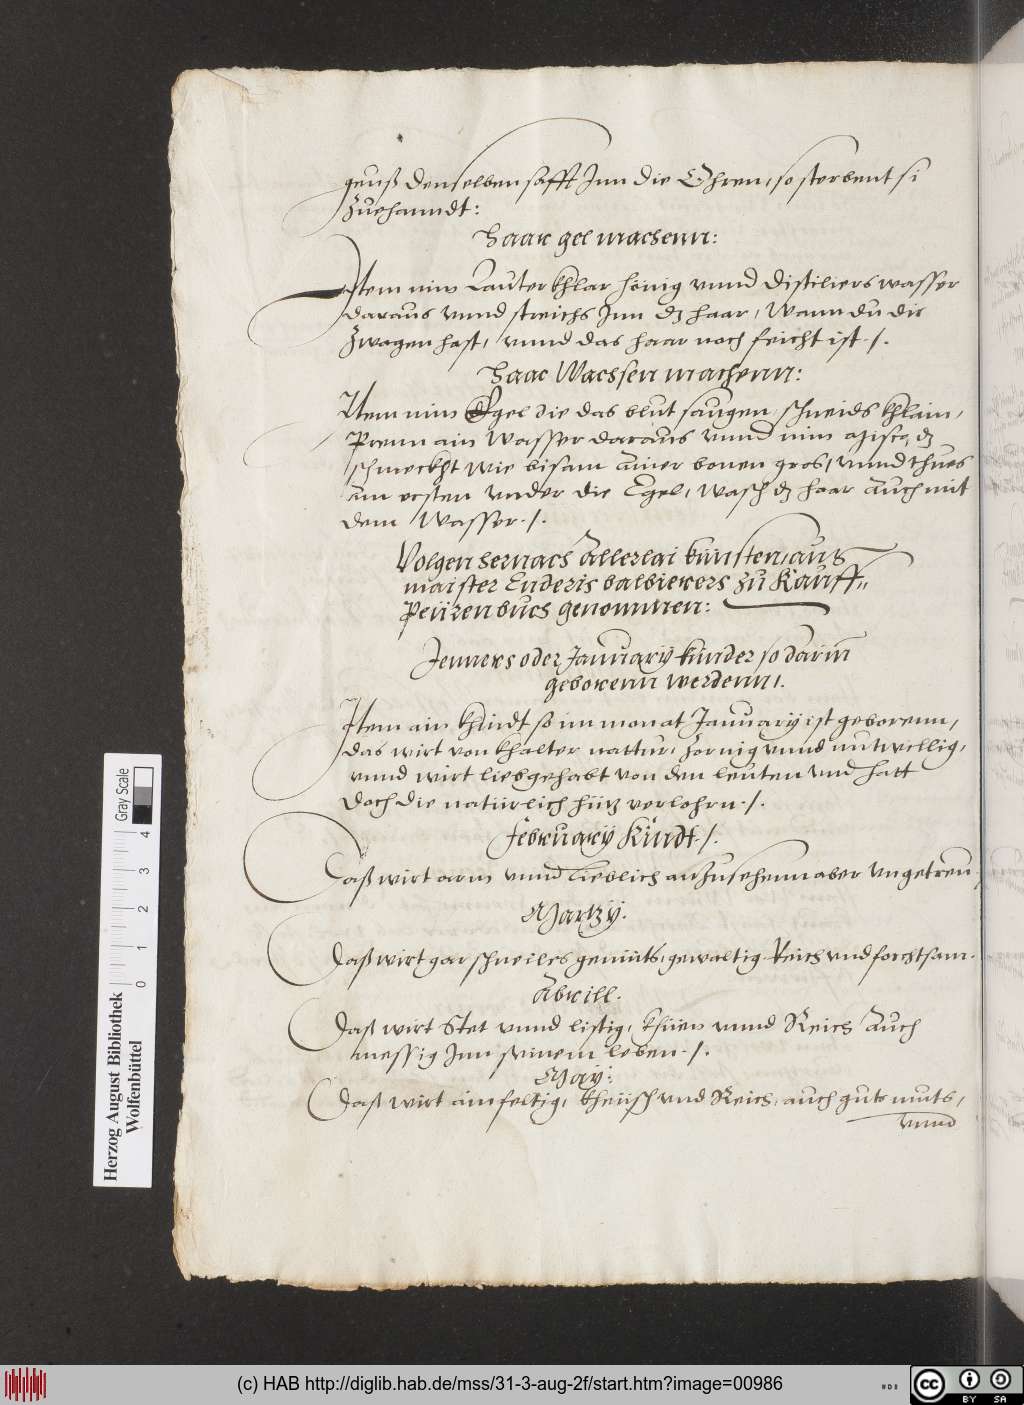 geuß denselben safft Jnn die Ohren, so sterbent si
Zuehanndt:
Haar gel machenn:
Jtem nim Lauter khlar hönig vnnd distiliers wasser
daraus vnnd streichs Jnn dz haar, Wann du dir
Zwagen hast, vnnd das haar noch feicht ist ./.
Haar Wachsen machenn:
Jtem nim Egel die das blut saugen, schneids khlain,
Prenn ain Wasser daraus vnnd nim dz
schmeckht wie bisam ainer bonen gros, vnnd thues
am ersten vnder die Egel, wasch dz haar Auch mit
dem Wasser ./.
Volgen hernach Allerlai künsten, aus
maister Enderis balbierers zu Kauff„
Peürenbuch genommen:
Jenners oder Januarÿ kinder so darin
geborenn werdenn,.
Jtem ain khindt so im monat Januarÿ ist geborenn,
das wirt von khalter nattur, zornig vnnd mutwillig,
vnnd wirt liebgehabt von den leuten vnd hatt
doch die natürlich hütz verlohrn ./.
februarÿ Kindt ./.
Daß wirt arm vnnd Lieblich an Zusehenn aber vngetreu.
Martzÿ.
Daß wirt gar schneiles gemüts, gewaltig Reich vnd forchtsam.
Abrill.
Daß wirt Stet vnnd listig, khüen vnnd Reich Auch
messig Jnn seinem leben ./.
Maÿ:
Daß wirt ainfeltig, kheüsch vnd Reich, auch guts muts,
vnnd
Herzog August Bibliothek
Wolfenbüttel
0 1 2 3 4
Gray Scale
(c) HAB http://diglib.hab.de/mss/31-3-aug-2f/start.htm?image=00986
cc BY SA